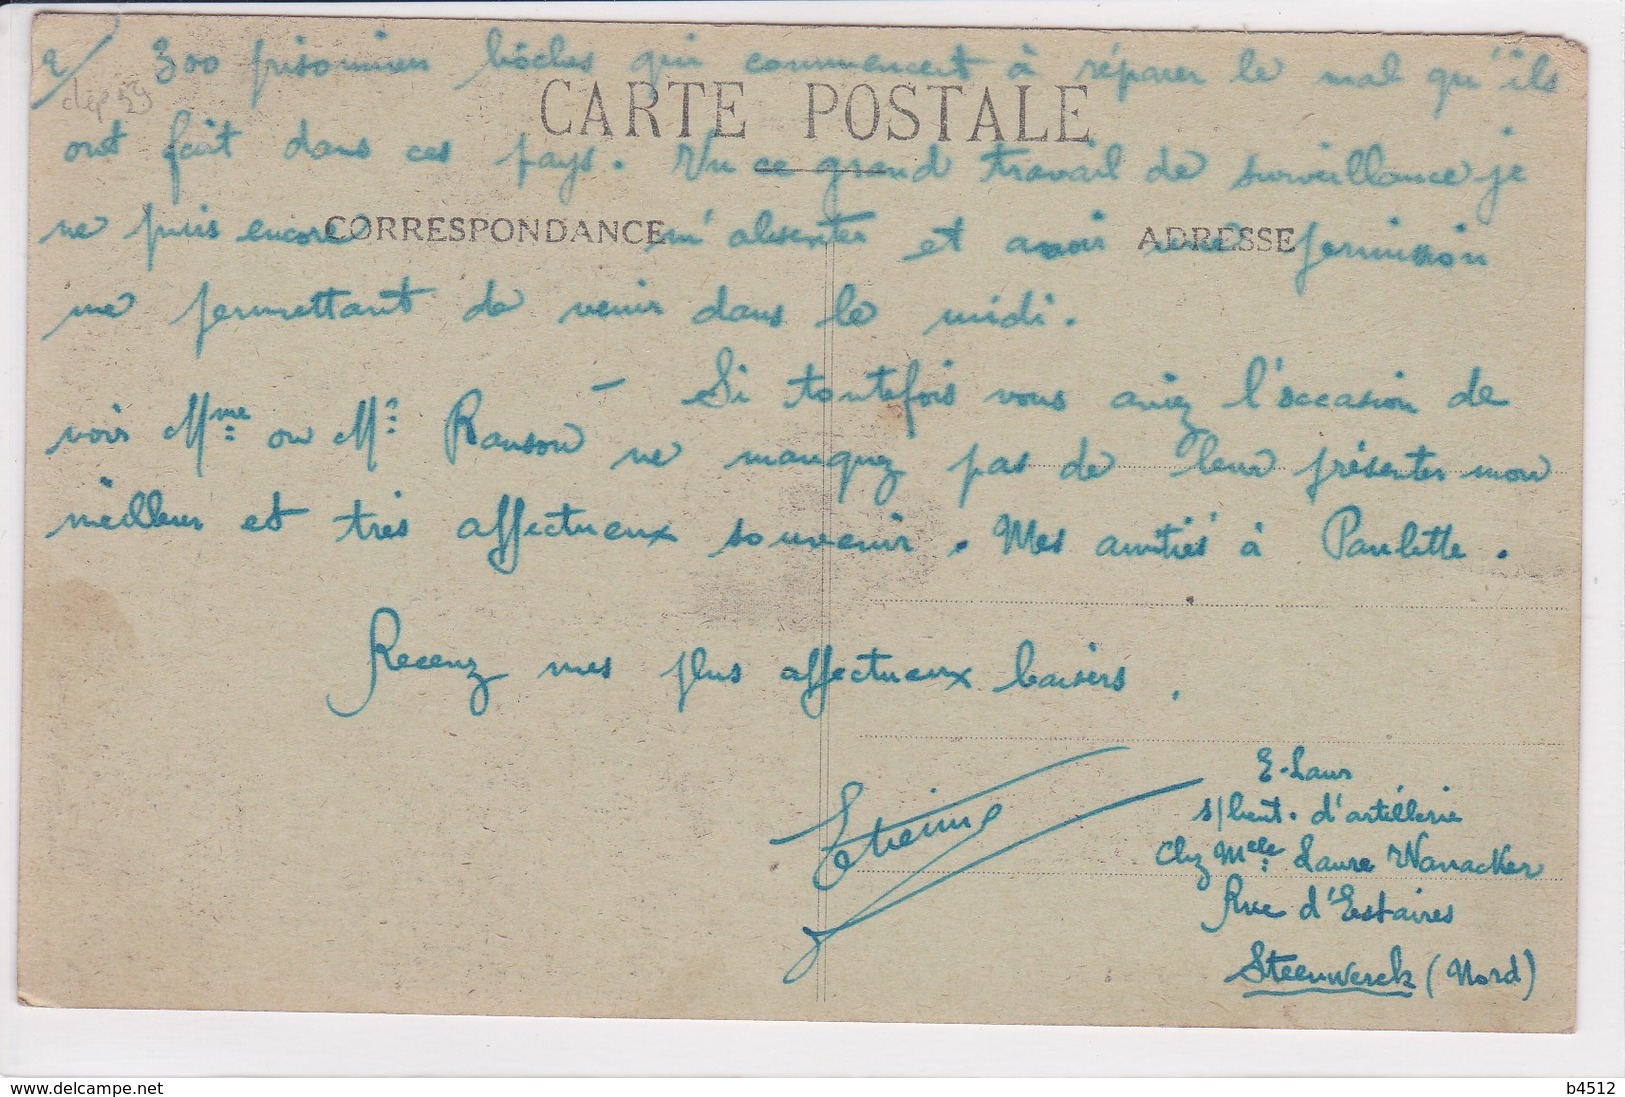 2/ 300 prisonniers bôches qui commencent à réparer le mal qu'ils
dép 59
CARTE POSTALE
ont fait dans ces pays. Vu ce grand travail de surveillance je
ne puis encore m'absenter et avoir une permission
CORRESPONDANCE ADRESSE
me permettant de venir dans le midi.
– Si toutefois vous aviez l'occasion de
voir Mme ou Mr Ranson ne manquez pas de leur présenter mon
meilleur et très affectueux souvenir. Mes amitiés à Paulette.
Recevez mes plus affectueux baisers.
Etienne
E. Laur
s/lieut. d'artillerie
Chez Melle Laure Wanacker
Rue d'Estaires
Steenwerck (Nord)
www.delcampe.net
b4512